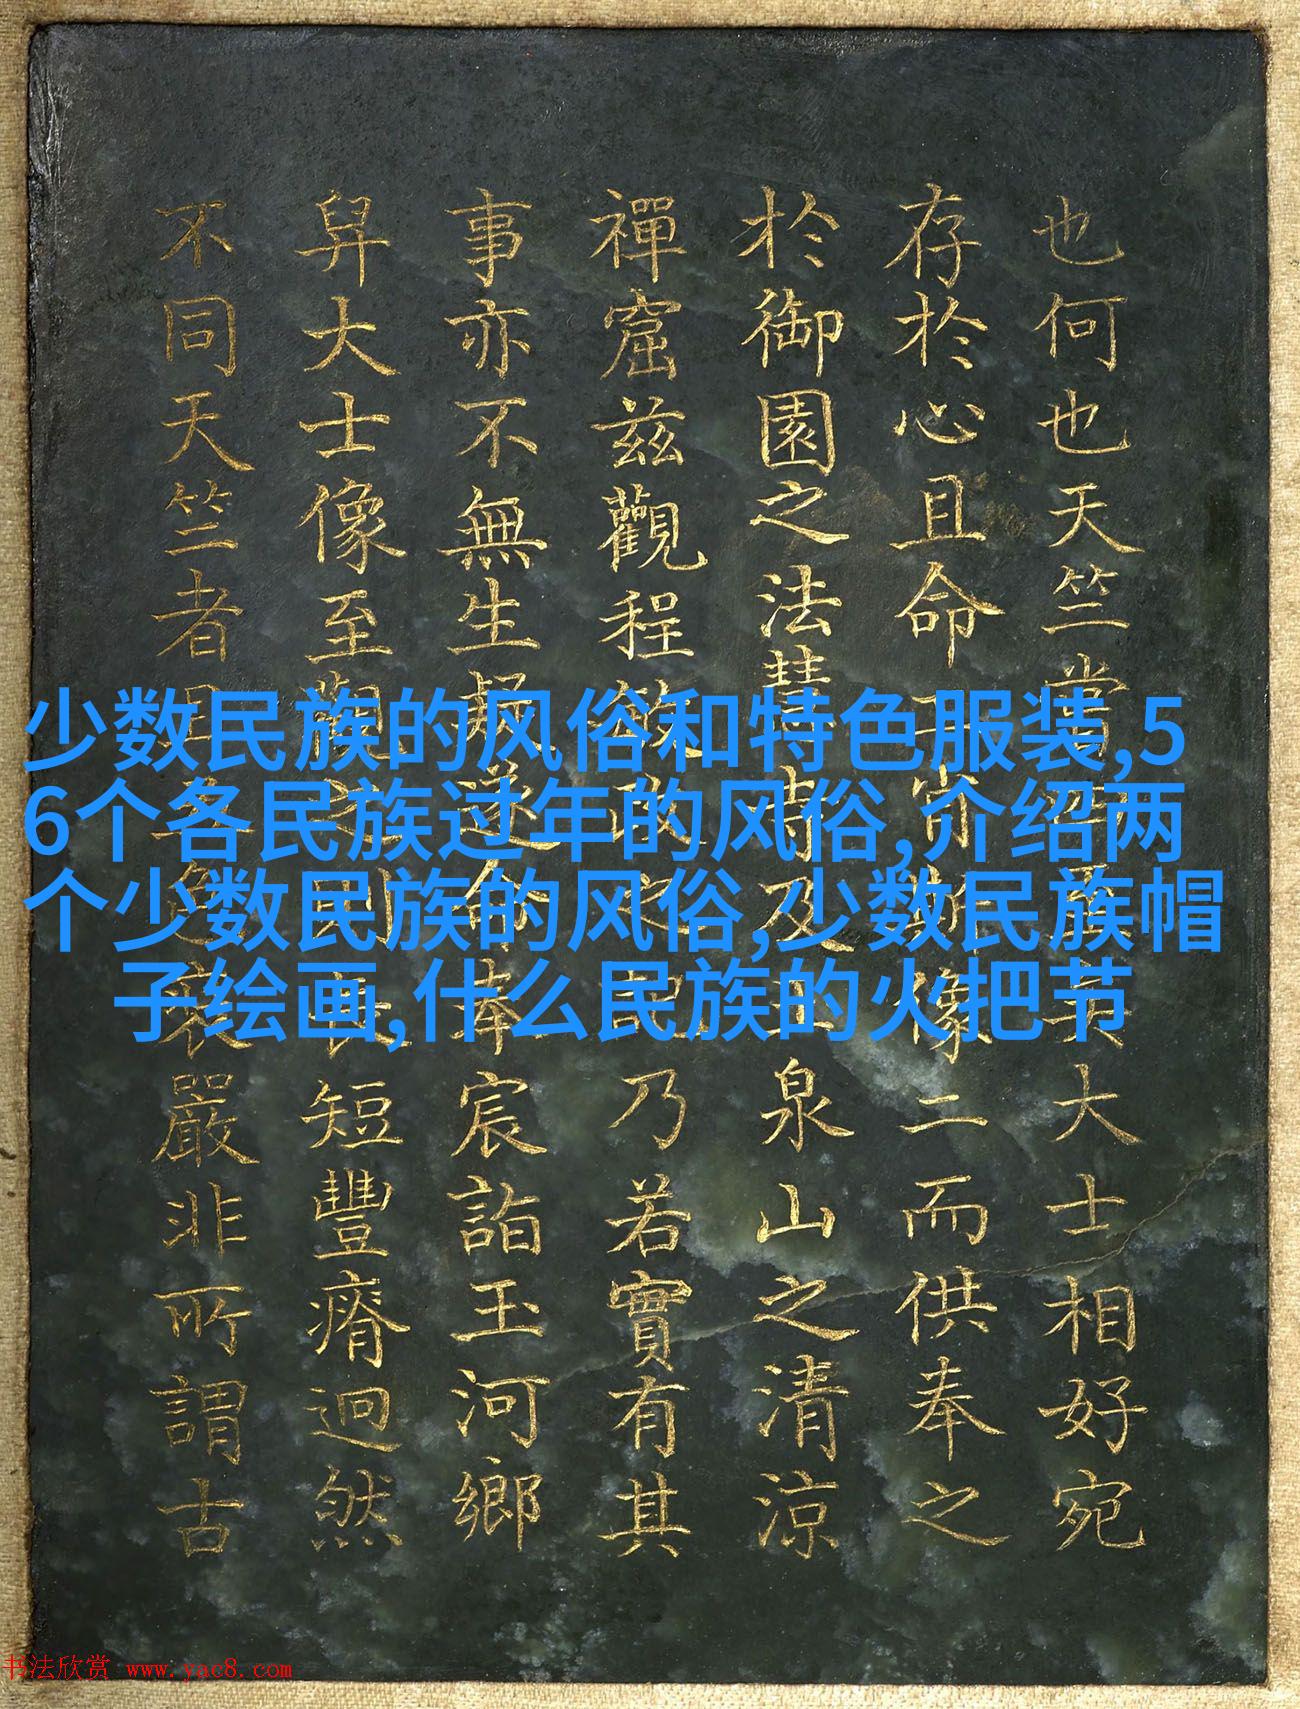 也何也天竺嘗
大士相好宛
存於心且命
像二而供奉之
於御園之法慧
及
泉山之清涼
禪窟兹觀程
乃若實有其
事亦不無生疑
遂命奉宸詣玉河鄉
舁大士像至
短豐瘠迥然
不同天竺者
嚴非所謂古
少数民族的风俗和特色服装,5
6个各民族过年的风俗,介绍两
个少数民族的风俗,少数民族帽
子绘画,什么民族的火把节
书法欣赏 www.yac8.com